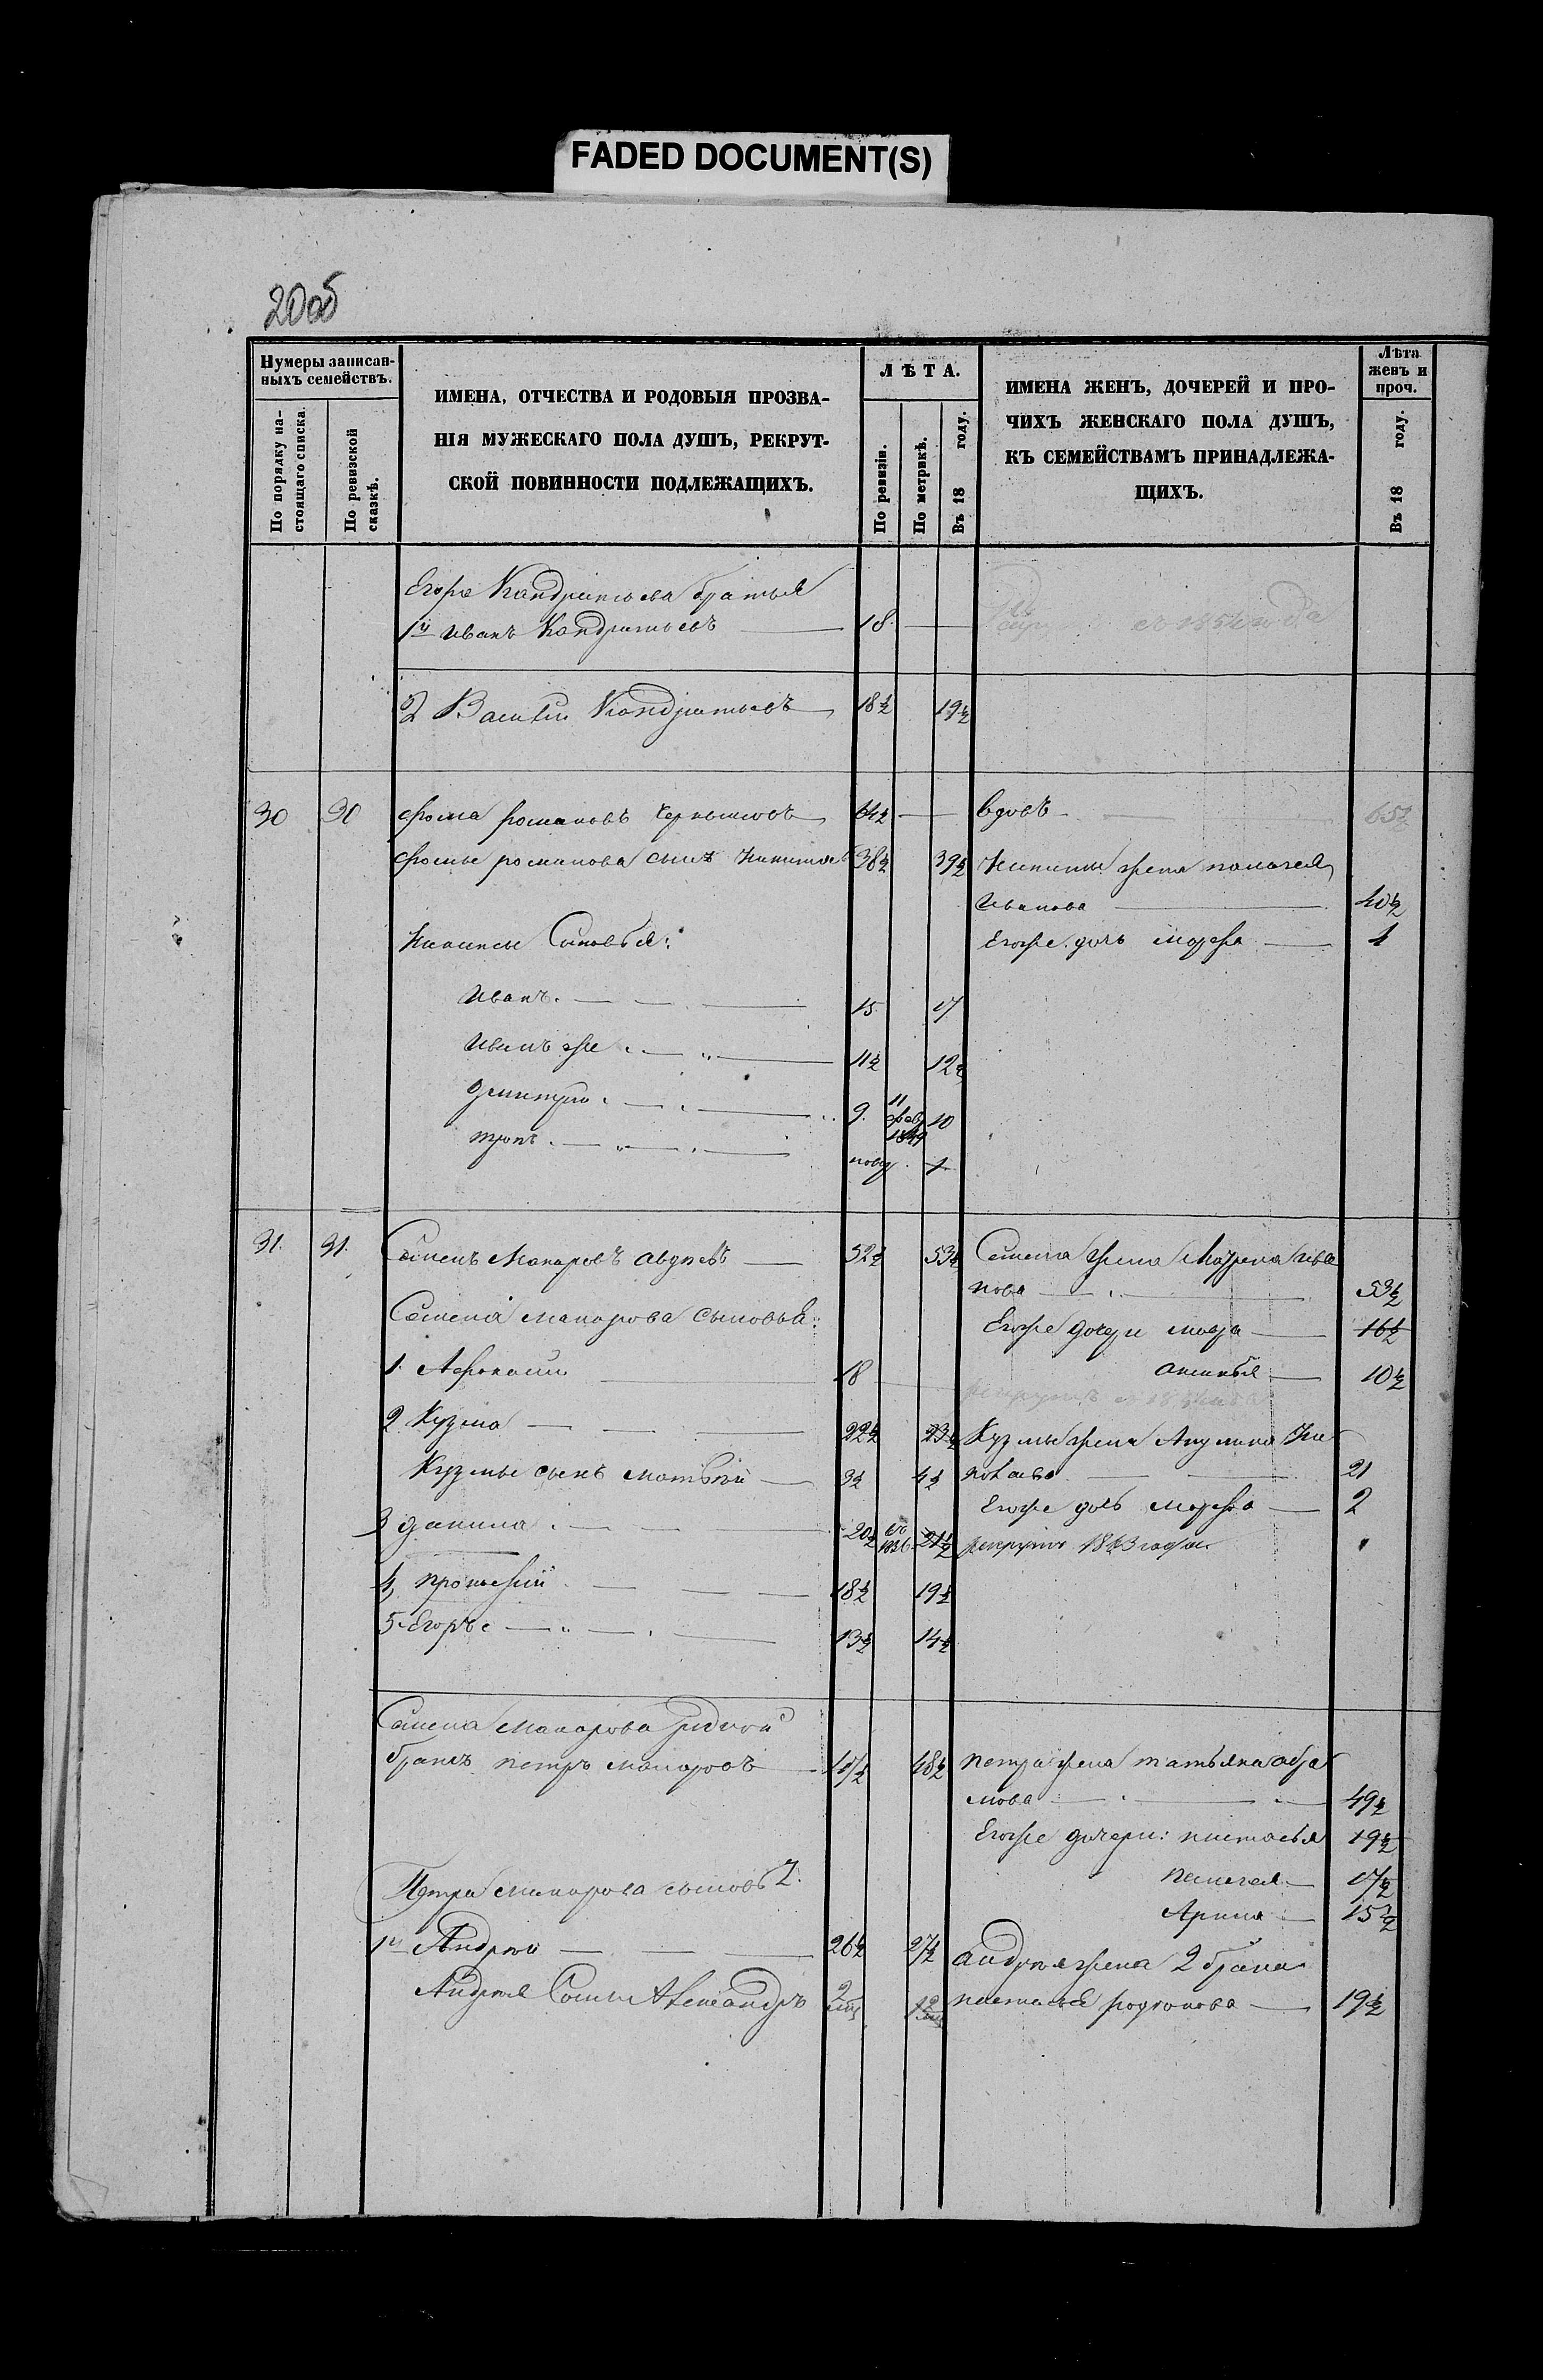 FADED DOCUMENT(S)
20об
Нумеры записан-
ныхъ семействъ.
По порядку на-
стоящаго списка.
По ревизской
сказкѣ.
ИМЕНА, ОТЧЕСТВА И РОДОВЫЯ ПРОЗВА-
НІЯ МУЖЕСКАГО ПОЛА ДУШЪ, РЕКРУТ-
СКОЙ ПОВИННОСТИ ПОДЛЕЖАЩИХЪ.
ЛѢТА.
По ревизіи.
По метрикѣ.
Въ 18 году.
ИМЕНА ЖЕНЪ, ДОЧЕРЕЙ И ПРО-
ЧИХЪ ЖЕНСКАГО ПОЛА ДУШЪ,
КЪ СЕМЕЙСТВАМЪ ПРИНАДЛЕЖА-
ЩИХЪ.
Лѣта
женъ и
проч.
Въ 18 году.
Егора Кондратьева братья
1й Иванъ Кондратьевъ 18 съ 1854 года
2 Василій Кондратьевъ 18½ 19½
30 30 Фома романовъ Чернышовъ 64½ вдовъ 65½
Фомы романова сынъ Никита 38½ 39½ Никиты жена палагея
Иванова 40½
Никиты Сыновья: Егоже дочь марфа 1
Иванъ 15 17
Иванъ же 11½ 12½
Дмитрій 9. 11 фев 1849 10
новор. 1
31. 31. Семенъ Макаровъ 52½ 53½ Семена жена Матрена Ива
нова 53½
Семена макарова сыновья: Егоже дочери мавра 16½
1. Афонасій 18 аксинья 10½
рекрутъ съ 18
2 Кузма 22½ 23½ Кузмы жена Акулина
Кузмы сынъ матвѣй 3½ 4½ 21
Егоже дочь марфа 2
3 данила 20½ 1836 21½ рекрутъ 1863 года
4 прокофій 18½ 19½
5 Егоръ 13½ 14½
Семена Макарова родной
братъ петръ макаровъ 47½ 48½ петра жена татьяна абра
мова 49½
Егоже дочери: настасья 19½
пелагея 17½
Петра макарова сыновья
Арина 15½
1й Андрей 26½ 27½ андрея жена 2 брака
Андрея Сынъ Александръ 2 12 настасья родионова 19½